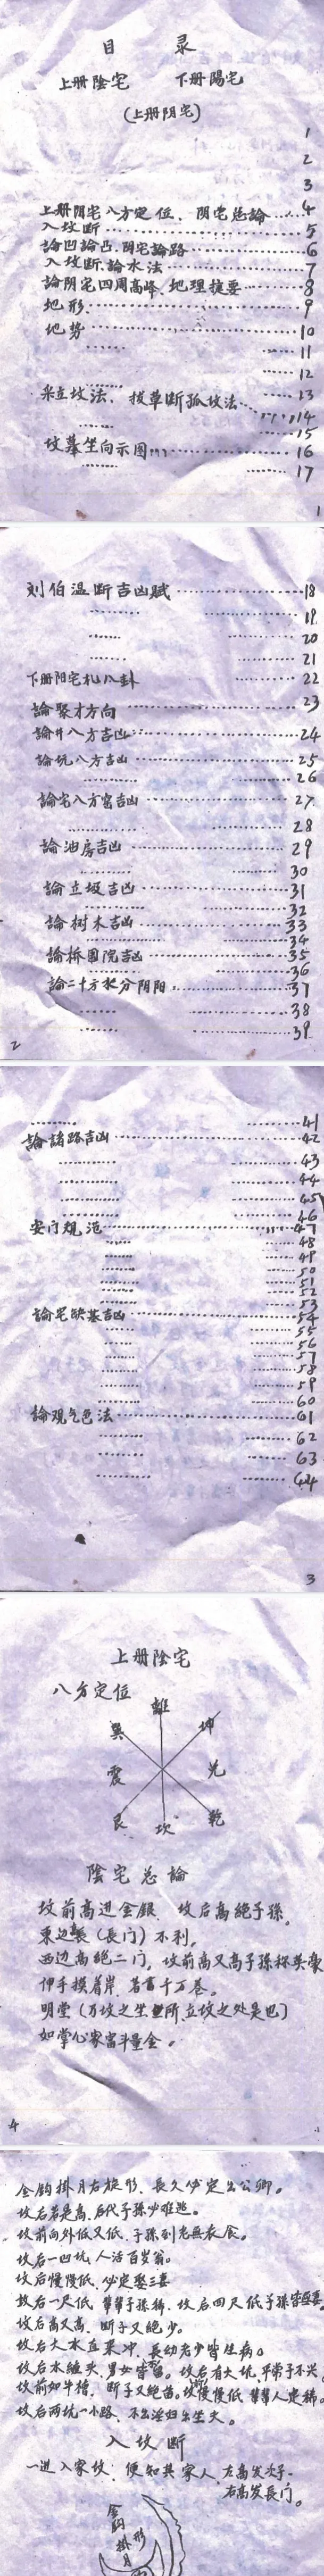 目 录
上册陰宅 下册陽宅
(上册阴宅)
1
2
3
上册阴宅八方定位、阴宅总論......4
入坟断......5
論凹論凸、阴宅論路......6
入坟断、論水法......7
論阴宅四周高峰、地理摘要......8
地形、......9
地势......10
......11
......12
采立坟法、拔草断孤坟法......13
......14
......15
坟墓坐向示图......16
......17
1
刘伯温断吉凶赋......18
......19
......20
......21
下册阳宅札八卦......22
論聚才方向......23
論井八方吉凶......24
論坑八方吉凶......25
......26
論宅八方窑吉凶......27
......28
論油房吉凶......29
......30
論立圾吉凶......31
......32
論树木吉凶......33
......34
論桥围院吉凶......35
......36
論二十方把分阴阳......37
......38
......39
2
......41
論諸路吉凶......42
......43
......44
......45
......46
安门规范......47
......48
......49
......50
......51
......52
......53
論宅缺基吉凶......54
......55
......56
......57
......58
......59
......60
論观气色法......61
......62
......63
......64
3
上册陰宅
八方定位
離
巽 坤
震 兑
艮 坎 乾
陰宅总論
坟前高進金銀、坟后高絕子孫。
東边高(長门)不利。
西边高絕二门,坟前高又高子孫称英豪
伸手摸着岸、若富千万卷。
明堂(万坟之坐所、立坟之处是也)
如掌心家富斗量金。
4
金鈎掛月右旋形、長久必定出公卿。
坟后若是高、后代子孫必难逃。
坟前向外低又低、子孫到老無衣食。
坟后一凹坑、人活百岁翁。
坟后慢慢低、必定娶三妻
坟后一尺低 輩輩子孫稀、坟后四尺低子孫皆
坟后高又高、断子又絕少。
坟后大水直来冲、長幼老少皆生病。
坟后水缠头、男女皆。坟后有大坑、平常子不兴。
坟前如牛槽、断子又絕苗。坟慢慢低、輩輩人更稀。
坟后两坑一小路、不出淫妇出生夫。
入坟断
一進入家坟、便知其家人、左高发次子、
右高发長门。
金鈎掛月形